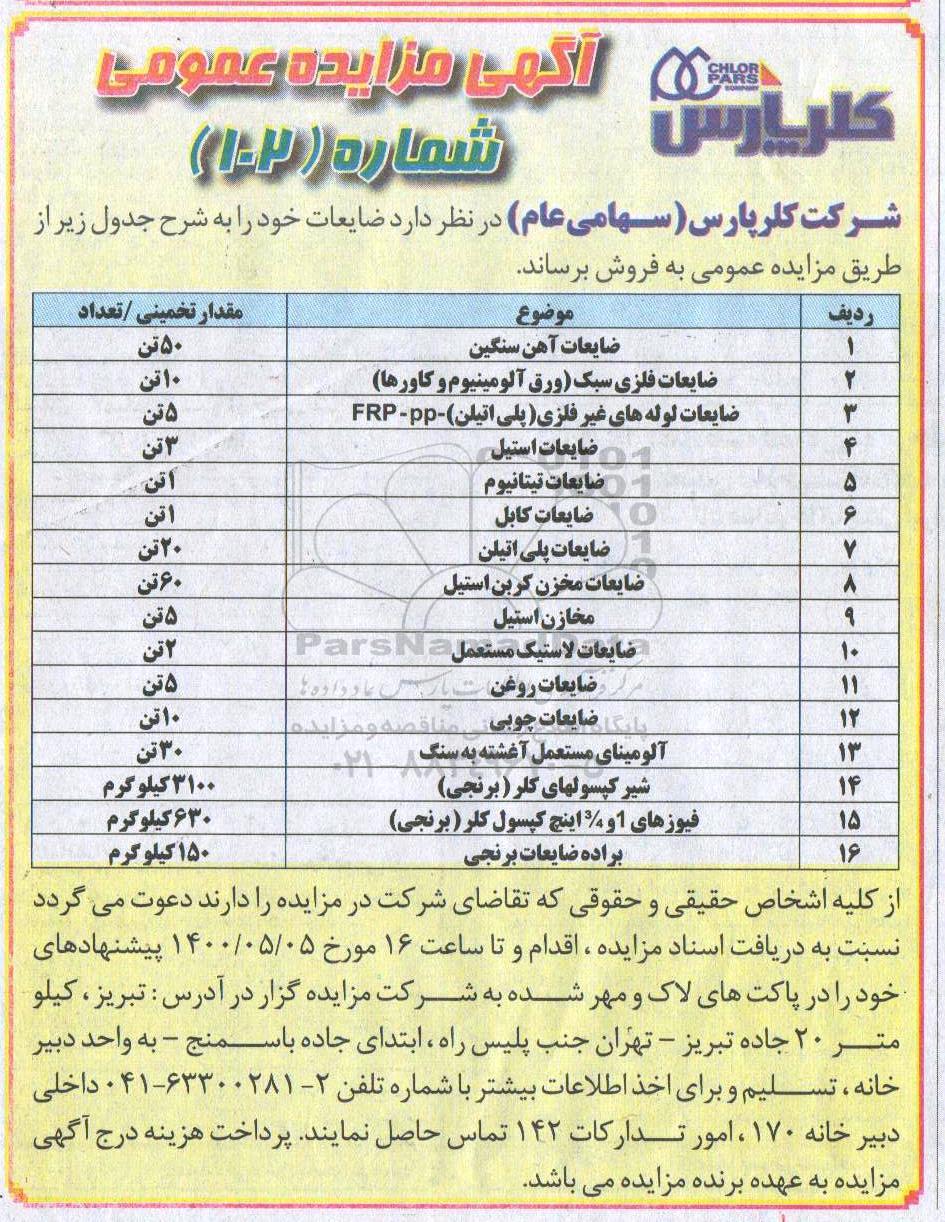 آگهی مزایده عمومی
شماره (۱۰۲)
CHLOR
PARS
COMPANY
کلرپارس
شرکت کلرپارس (سهامی عام) در نظر دارد ضایعات خود را به شرح جدول زیر از
طریق مزایده عمومی به فروش برساند.
ردیف موضوع مقدار تخمینی /تعداد
۱ ضایعات آهن سنگین ۵۰تن
۲ ضایعات فلزی سبک (ورق آلومینیوم و کاورها) ۱۰تن
۳ ضایعات لوله های غیر فلزی( پلی اتیلن)-FRP - pp ۵تن
۴ ضایعات استیل ۳تن
۵ ضایعات تیتانیوم ۱تن
۶ ضایعات کابل ۱تن
۷ ضایعات پلی اتیلن ۲۰تن
۸ ضایعات مخزن کربن استیل ۶۰تن
۹ مخازن استیل ۵تن
۱۰ ضایعات لاستیک مستعمل ۲تن
۱۱ ضایعات روغن ۵تن
۱۲ ضایعات چوبی ۱۰تن
۱۳ آلومینای مستعمل آغشته به سنگ ۳۰تن
۱۴ شیر کپسولهای کلر ( برنجی) ۳۱۰۰کیلوگرم
۱۵ فیوزهای 1و ¾ اینچ کپسول کلر ( برنجی) ۶۳۰کیلوگرم
۱۶ براده ضایعات برنجی ۱۵۰کیلوگرم
ParsNamadData
از کلیه اشخاص حقیقی و حقوقی که تقاضای شرکت در مزایده را دارند دعوت می گردد
نسبت به دریافت اسناد مزایده ، اقدام و تا ساعت ۱۶ مورخ ۱۴۰۰/۰۵/۰۵ پیشنهادهای
خود را در پاکت های لاک و مهر شده به شرکت مزایده گزار در آدرس : تبریز ، کیلو
متر ۲۰ جاده تبریز – تهران جنب پلیس راه ، ابتدای جاده باسمنج – به واحد دبیر
خانه ، تسلیم و برای اخذ اطلاعات بیشتر با شماره تلفن ۲-۰۴۱-۶۳۳۰۰۲۸۱ داخلی
دبیر خانه ۱۷۰ ، امور تدارکات ۱۴۲ تماس حاصل نمایند. پرداخت هزینه درج آگهی
مزایده به عهده برنده مزایده می باشد.